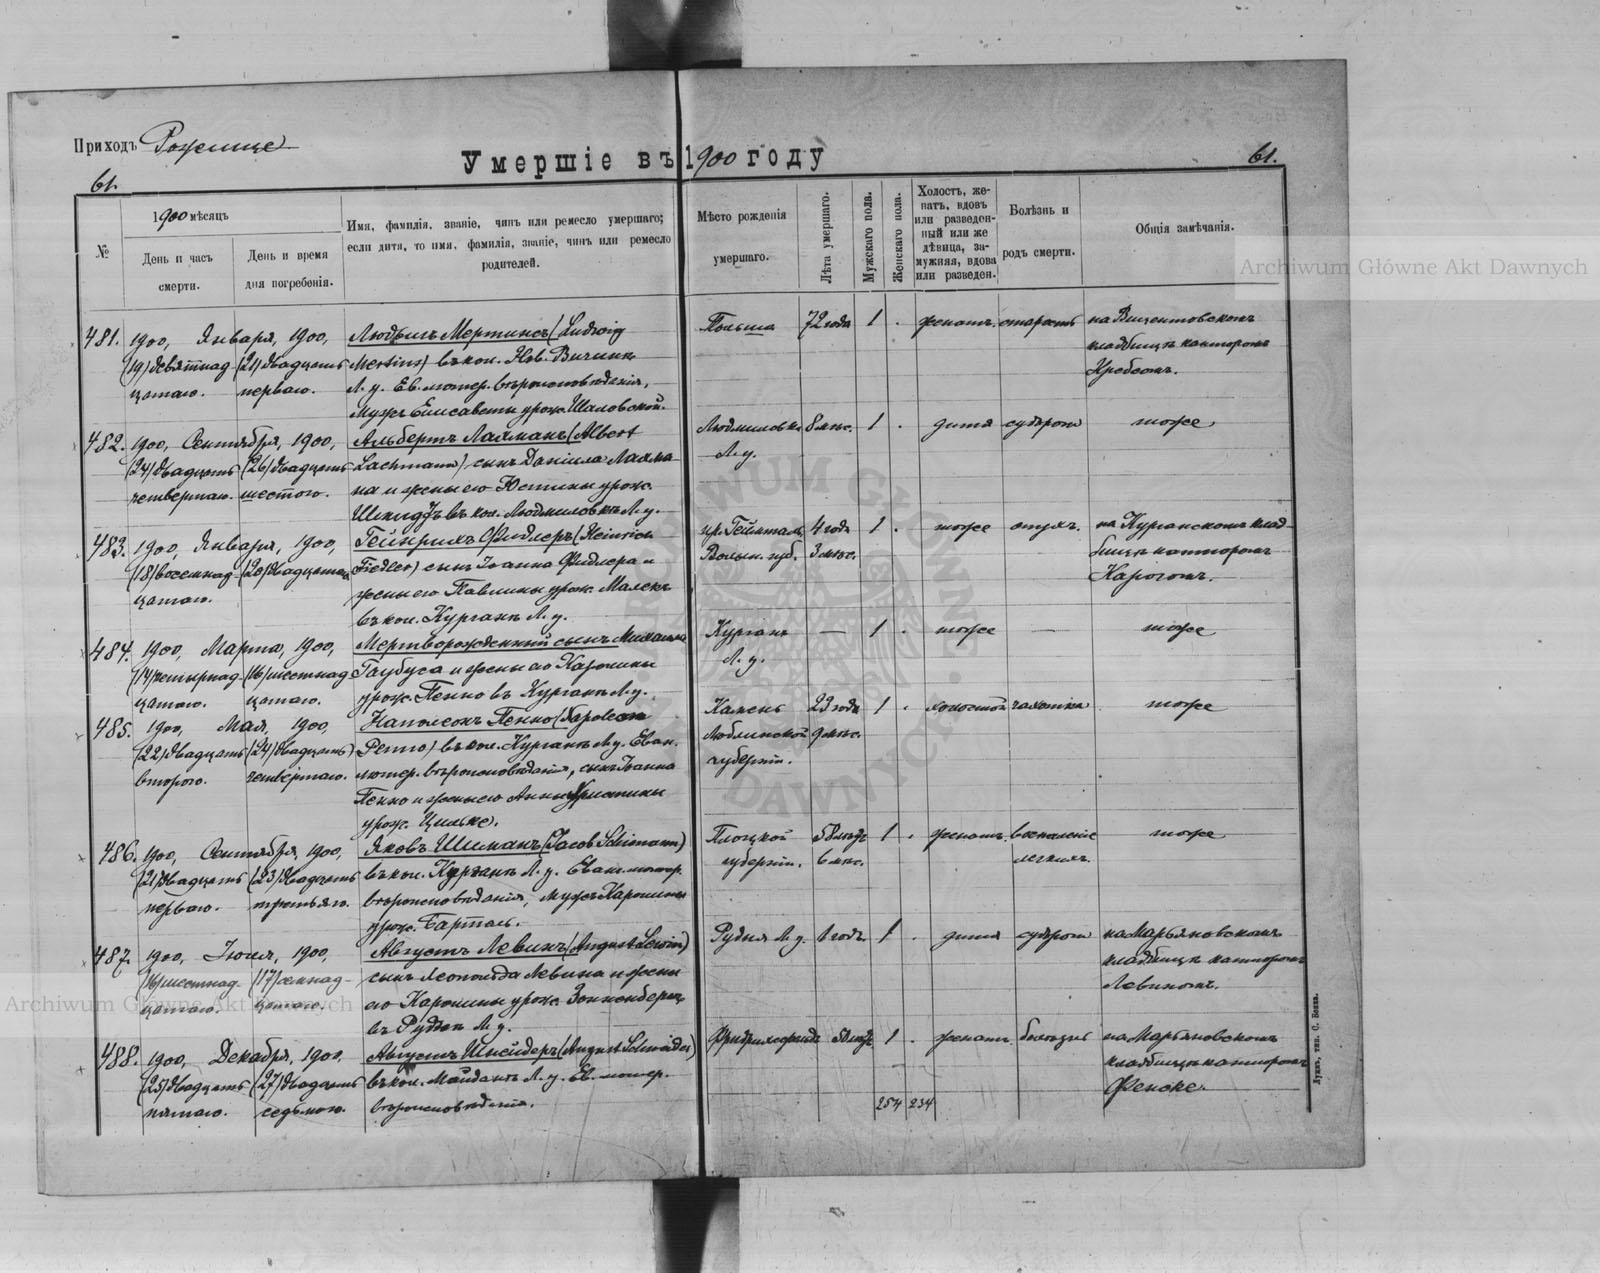 Приходъ Рожище
Умершіе въ 1900 году
61.
61.
№
1900 мѣсяцъ
День и часъ
смерти.
День и время
дня погребенія.
Имя, фамилія, званіе, чинъ или ремесло умершаго;
если дитя, то имя, фамилія, званіе, чинъ или ремесло
родителей.
Мѣсто рожденія
умершаго.
Лѣта умершаго.
Мужскаго пола.
Женскаго пола.
Холостъ, же-
натъ, вдовъ
или разведен-
ный или же
дѣвица, за-
мужняя, вдова
или разведен.
Болѣзнь и
родъ смерти.
Общія замѣчанія.
481. 1900, Января, 1900,
(19) девятнад- (21) двадцать
цатаго. перваго.
Людвигъ Мертинсъ (Ludwig
Mertins) въ кол. Нов.
Л. у. Ев. лютер. вѣроисповѣданія,
мужъ Елисаветы урож. Шаловской.
Польша 72 года 1 . женатъ. старость
кладбищѣ канторомъ
482. 1900, Сентября, 1900,
(24) двадцать (26) двадцать
четвертаго. шестого.
Альбертъ Лахманъ (Albert
Lachmann) сынъ Даніила Лахма-
на и жены его Юстины урож.
въ кол. Людмиловкѣ Л. у.
Людмиловка 8 мѣс. 1 . дитя судороги тоже
Л. у.
483. 1900, Января, 1900,
(18) восемнад- (20) двадцатаго
цатаго.
Гейнрихъ Фидлеръ (Heinrich
Fiedler) сынъ Іоанна Фидлера и
жены его Павлины урож. Малекъ
въ кол. Курганъ Л. у.
Волын. губ.
4 года
3 мѣс.
1 . тоже на Курганскомъ клад-
бищѣ канторомъ
484. 1900, Марта, 1900,
(14) четырнад- (16) шестнад-
цатаго. цатаго.
Мертворожденный сынъ Михаила
Таубуса и жены его Каролины
урож. Пенно въ Курганѣ Л. у.
Курганъ — 1 . тоже — тоже
Л. у.
485. 1900, Мая, 1900,
(22) двадцать (24) двадцать
второго. четвертаго.
Наполеонъ Пенно (Napoleon
Penno) въ кол. Курганъ Л. у. Еван.
лютер. вѣроисповѣданія, сынъ Іоанна
Пенно и жены его Анны Христины
урож. Цильке.
Камень 23 года 1 . холостой чахотка тоже
Люблинской 9 мѣс.
губерніи.
486. 1900, Сентября, 1900,
(21) двадцать (23) двадцать
перваго. третьяго.
Яковъ Шиманъ (Jacob Schimann)
въ кол. Курганъ Л. у. Еван. лютер.
вѣроисповѣданія, мужъ Каролины
урож. Бартель.
Плоцкой 58 лѣтъ 1 . женатъ. воспаленіе тоже
губерніи. 6 мѣс. легкихъ.
487. 1900, Іюля, 1900,
(16) шестнад- (17) семнад-
цатаго. цатаго.
Августъ Левинъ (August Lewin)
сынъ Леопольда Левина и жены
его Каролины урож. Зонненбергъ
въ Рудкѣ Л. у.
Рудня Л. у. 1 годъ. 1 . дитя судороги на Марьяновскомъ
кладбищѣ канторомъ
Левиномъ.
488. 1900, Декабря, 1900,
(25) двадцать (27) двадцать
пятаго. седьмого.
Августъ Шнейдеръ (August Schneider)
въ кол. Майданъ Л. у. Ев. лютер.
вѣроисповѣданія.
1 . женатъ на Марьяновскомъ
кладбищѣ канторомъ
Фенске.
254 234
Луцкъ, тип. С. Бокка.
Archiwum Główne Akt Dawnych
Archiwum Główne Akt Dawnych
ARCHIWUM GŁÓWNE AKT DAWNYCH